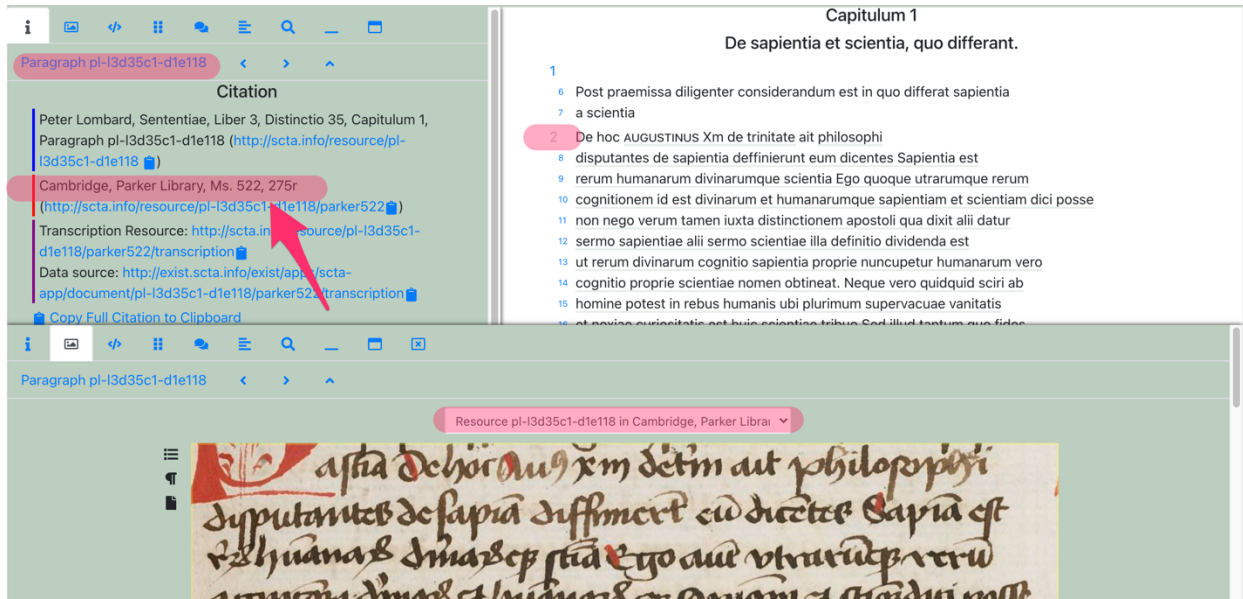 Paragraph pl-l3d35c1-d1e118
Citation
Peter Lombard, Sententiae, Liber 3, Distinctio 35, Capitulum 1,
Paragraph pl-l3d35c1-d1e118 (http://scta.info/resource/pl-
l3d35c1-d1e118 )
Cambridge, Parker Library, Ms. 522, 275r
(http://scta.info/resource/pl-l3d35c1-d1e118/parker522 )
Transcription Resource: http://scta.in source/pl-l3d35c1-
d1e118/parker522/transcription
Data source: http://exist.scta.info/exist/apps/scta-
app/document/pl-l3d35c1-d1e118/parker522/transcription
Copy Full Citation to Clipboard
Capitulum 1
De sapientia et scientia, quo differant.
1
6 Post praemissa diligenter considerandum est in quo differat sapientia
7 a scientia
2 De hoc AUGUSTINUS Xm de trinitate ait philosophi
8 disputantes de sapientia deffinierunt eum dicentes Sapientia est
9 rerum humanarum divinarumque scientia Ego quoque utrarumque rerum
10 cognitionem id est divinarum et humanarumque sapientiam et scientiam dici posse
11 non nego verum tamen iuxta distinctionem apostoli qua dixit alii datur
12 sermo sapientiae alii sermo scientiae illa definitio dividenda est
13 ut rerum divinarum cognitio sapientia proprie nuncupetur humanarum vero
14 cognitio proprie scientiae nomen obtineat. Neque vero quidquid sciri ab
15 homine potest in rebus humanis ubi plurimum supervacuae vanitatis
16 et noxiae curiositatis est huic scientiae tribuo Sed illud tantum quo fides
Paragraph pl-l3d35c1-d1e118
Resource pl-l3d35c1-d1e118 in Cambridge, Parker Librar
De hoc xm ait philosophi
disputantes de sapia est
Ego